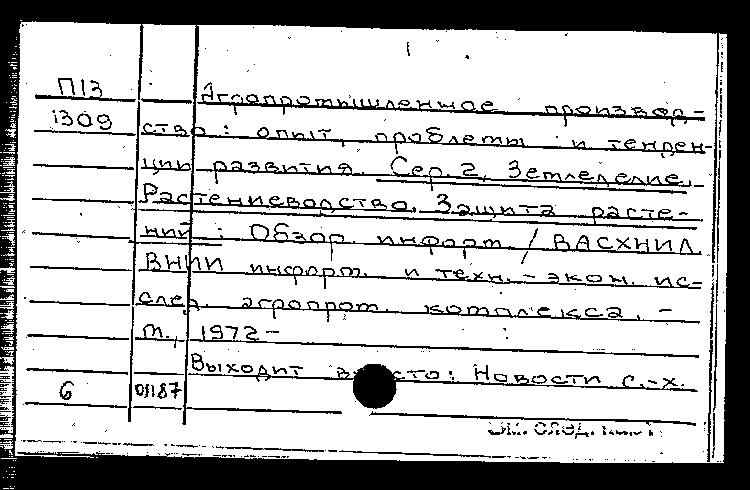 1
П13 Агропромышленное производ-
1309 ство: опыт, проблемы и тенден-
ции развития. Сер. 2, Земледелие.
Растениеводство. Защита расте-
ний: Обзор. информ. / ВАСХНИЛ.
ВНИИ информ. и техн.-экон. ис-
след. агропром. комплекса. -
М., 1972-
Выходит вместо: Новости с.-х.
6 01187
См. след. карт.